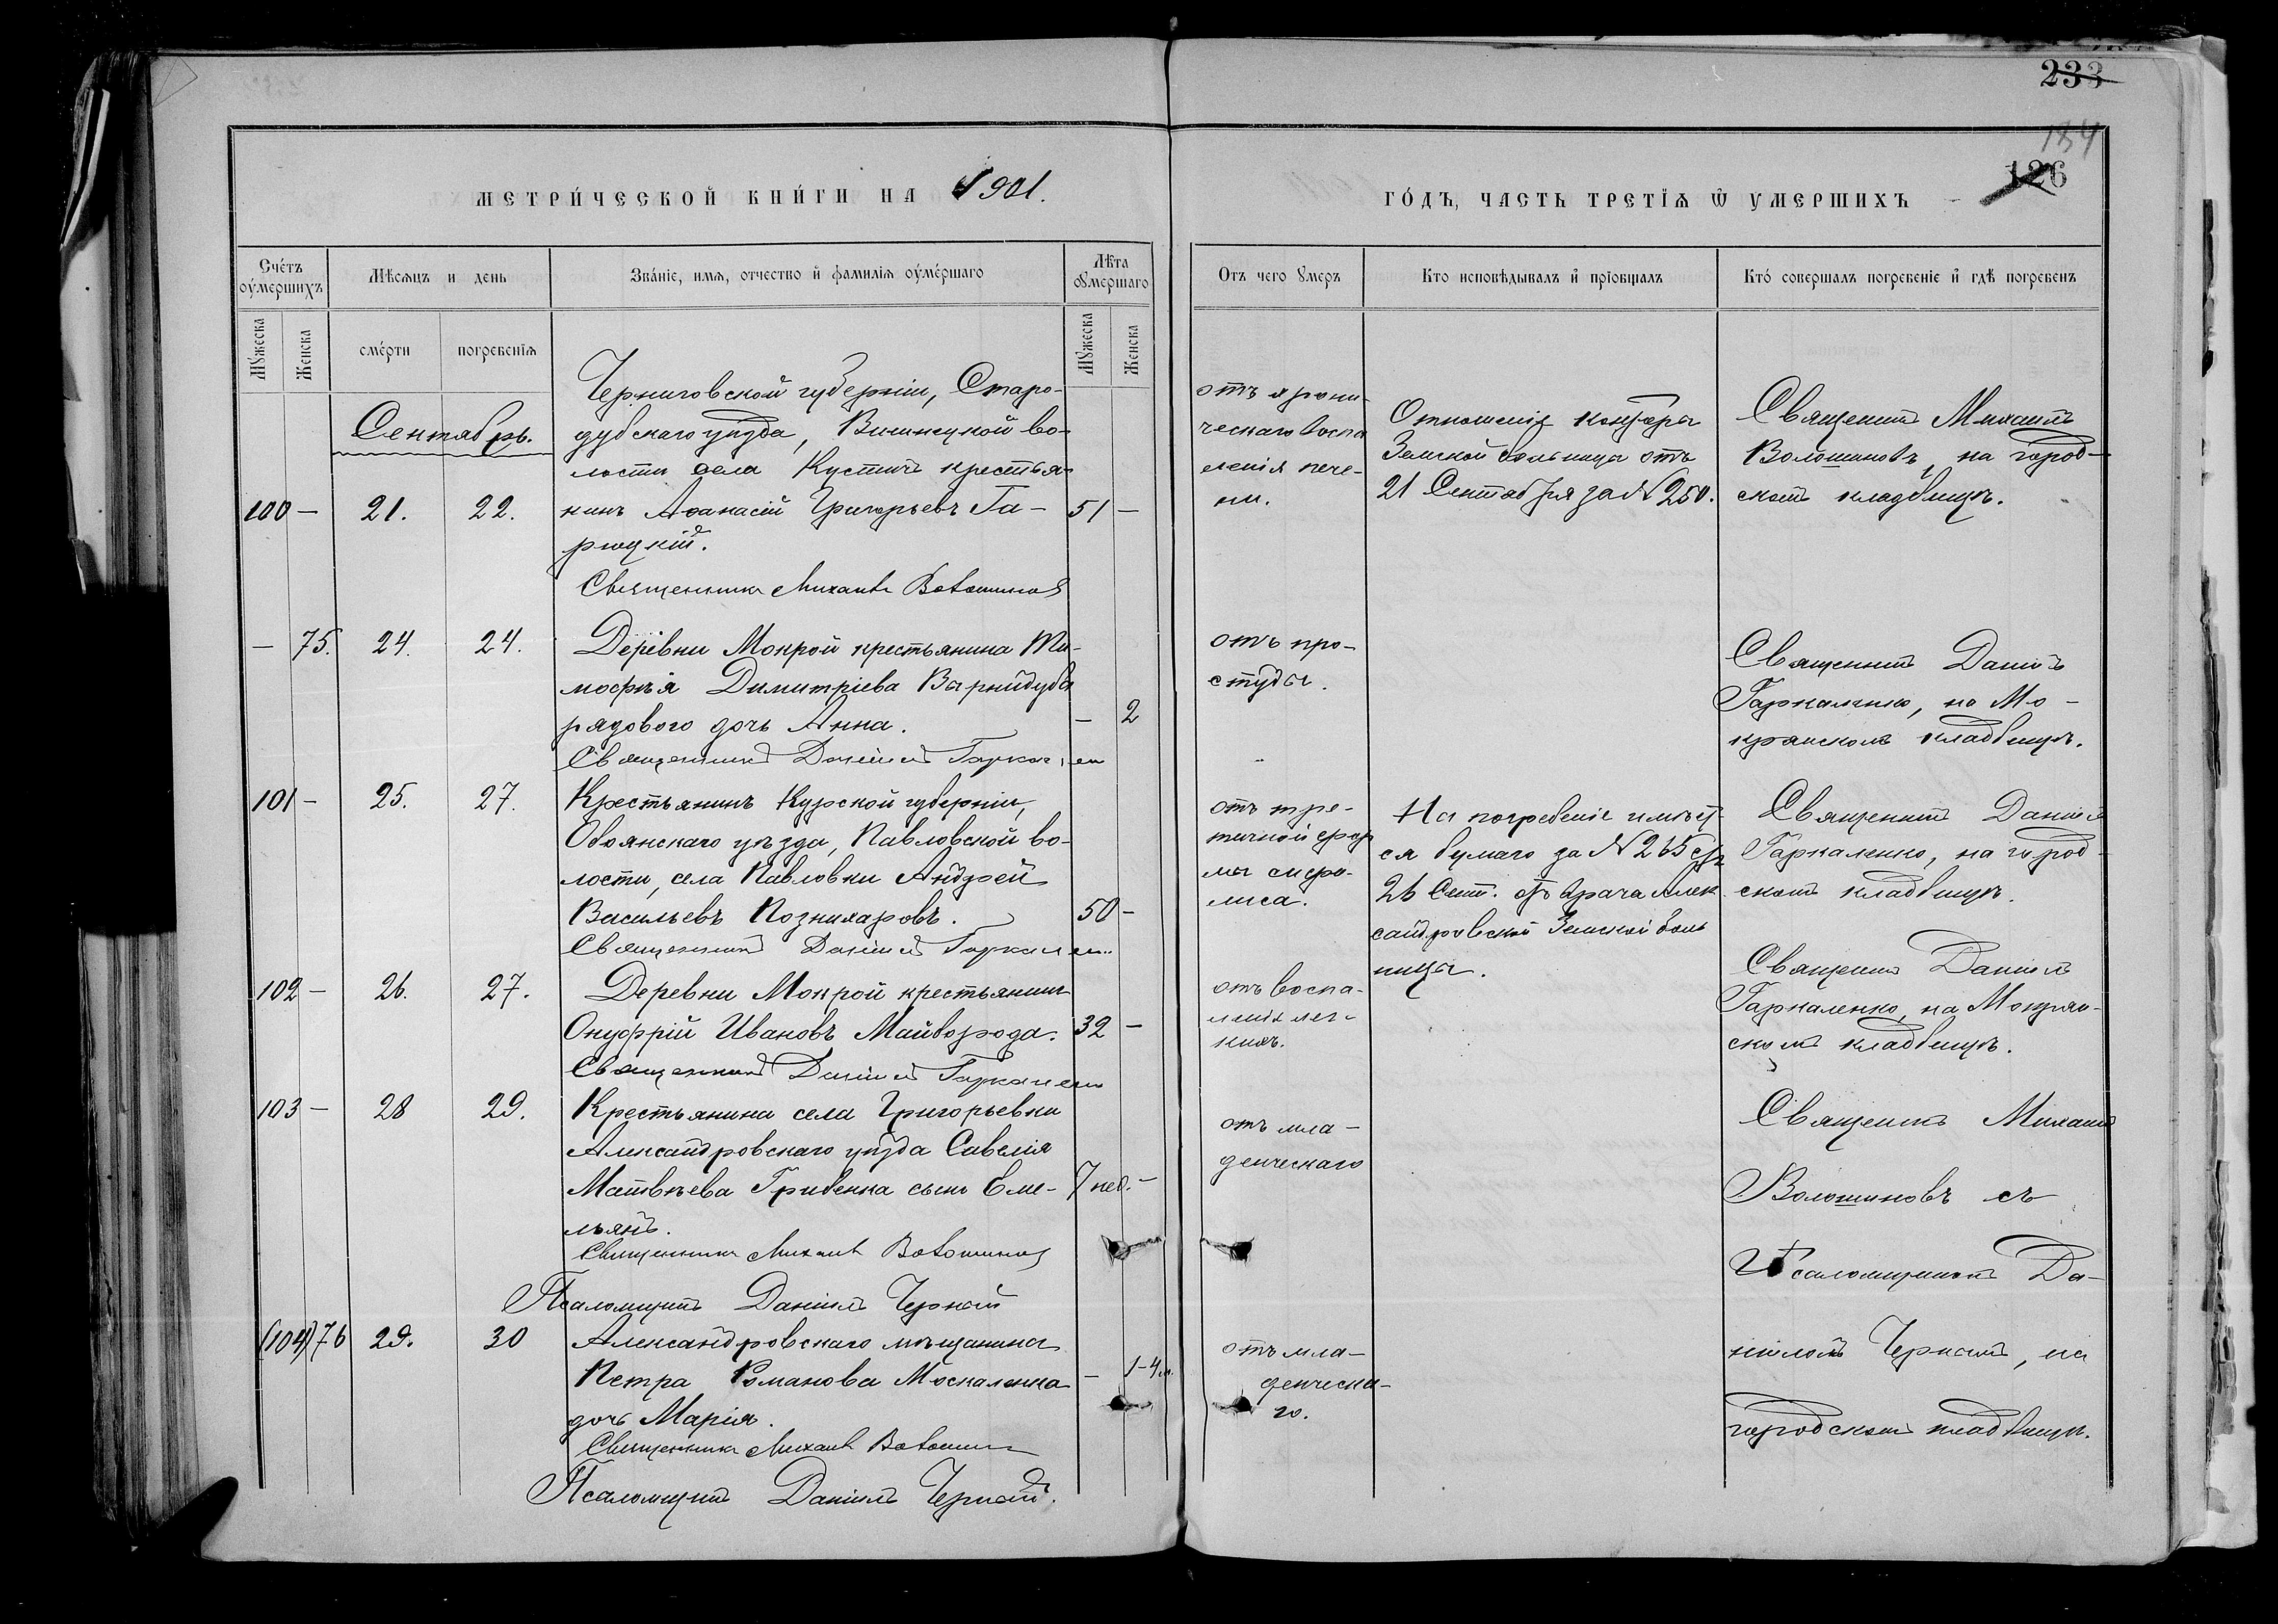 233
134
126
МЕТРИ́ЧЕСКОЙ КНИ́ГИ НА 1901.
ГО́ДЪ, ЧАСТЬ ТРЕТІѦ Ѿ УМЕРШИХЪ
Сче́тъ оу҆ме́ршихъ
Мѣсѧцъ и день
Зва́ніе, имѧ, отчество и҆ фамилія оу҆ме́ршаго
Лѣта оумершаго
Мꙋжеска
Женска
сме́рти
погребенїѧ
Мꙋжеска
Женска
Отъ чего ꙋмеръ
Кто исповѣдывалъ и҆ прїобщалъ
Кто́ совершалъ погребеніе и҆ гдѣ погребенъ
Сентябрь.
Черниговской губерніи, Старо-
дубскаго уѣзда, во-
лости села Кустичъ крестья-
100 — 21. 22. нинъ Аѳанасій Григорьевъ Га- 51 —
рюцкій.
Священникъ Михаилъ Волошиновъ
отъ хрони-
ческаго воспа
ленія пече-
ни.
Отношеніе конторы
Земской больницы отъ
21 Сентября за № 250.
Священникъ Михаилъ
Волошиновъ, на город-
скомъ кладбищѣ.
— 75. 24. 24. Деревни Мокрой крестьянина Ти-
моѳея Димитріева Вырвидуба
рядового дочь Анна. — 2
Священникъ Даніилъ Гаркален
отъ про-
студы.
Священникъ Даніилъ
Гаркаленко, на Мо-
крянскомъ кладбищѣ.
101 — 25. 27. Крестьянинъ Курской губерніи,
Обоянскаго уѣзда, Павловской во-
лости, села Павловки Андрей
Васильевъ Познихаровъ. 50 —
Священникъ Даніилъ Гаркален
отъ тре-
тичной фор
мы сифи-
лиса.
На погребеніе имѣет-
ся бумага за № 265 отъ
26 Сент. отъ врача Алек
сандровской Земской боль
ницы.
Священникъ Даніилъ
Гаркаленко, на город-
скомъ кладбищѣ.
102 — 26. 27. Деревни Мокрой крестьянинъ
Онуфрій Ивановъ Майборода. 32 —
Священникъ Даніилъ Гаркален
отъ воспа-
ленія лег-
кихъ.
Священникъ Даніилъ
Гаркаленко, на Мокрян-
скомъ кладбищѣ.
103 — 28 29. Крестьянина села Григорьевки
Александровскаго уѣзда Савелія
Матвѣева Грибенка сынъ Еме- 7 нед. —
льянъ.
Священникъ Михаилъ Волошиновъ
Псаломщикъ Даніилъ Черный
отъ мла-
денческаго
Священникъ Михаилъ
Волошиновъ съ
Псаломщикомъ Да-
ніиломъ Чернымъ, на
городскомъ кладбищѣ.
(104) 76 29. 30 Александровскаго мѣщанина
Петра Романова Москаленка — 1-4 м.
дочь Марія.
Священникъ Михаилъ Волошин
Псаломщикъ Даніилъ Черный.
отъ мла-
денческа-
го.